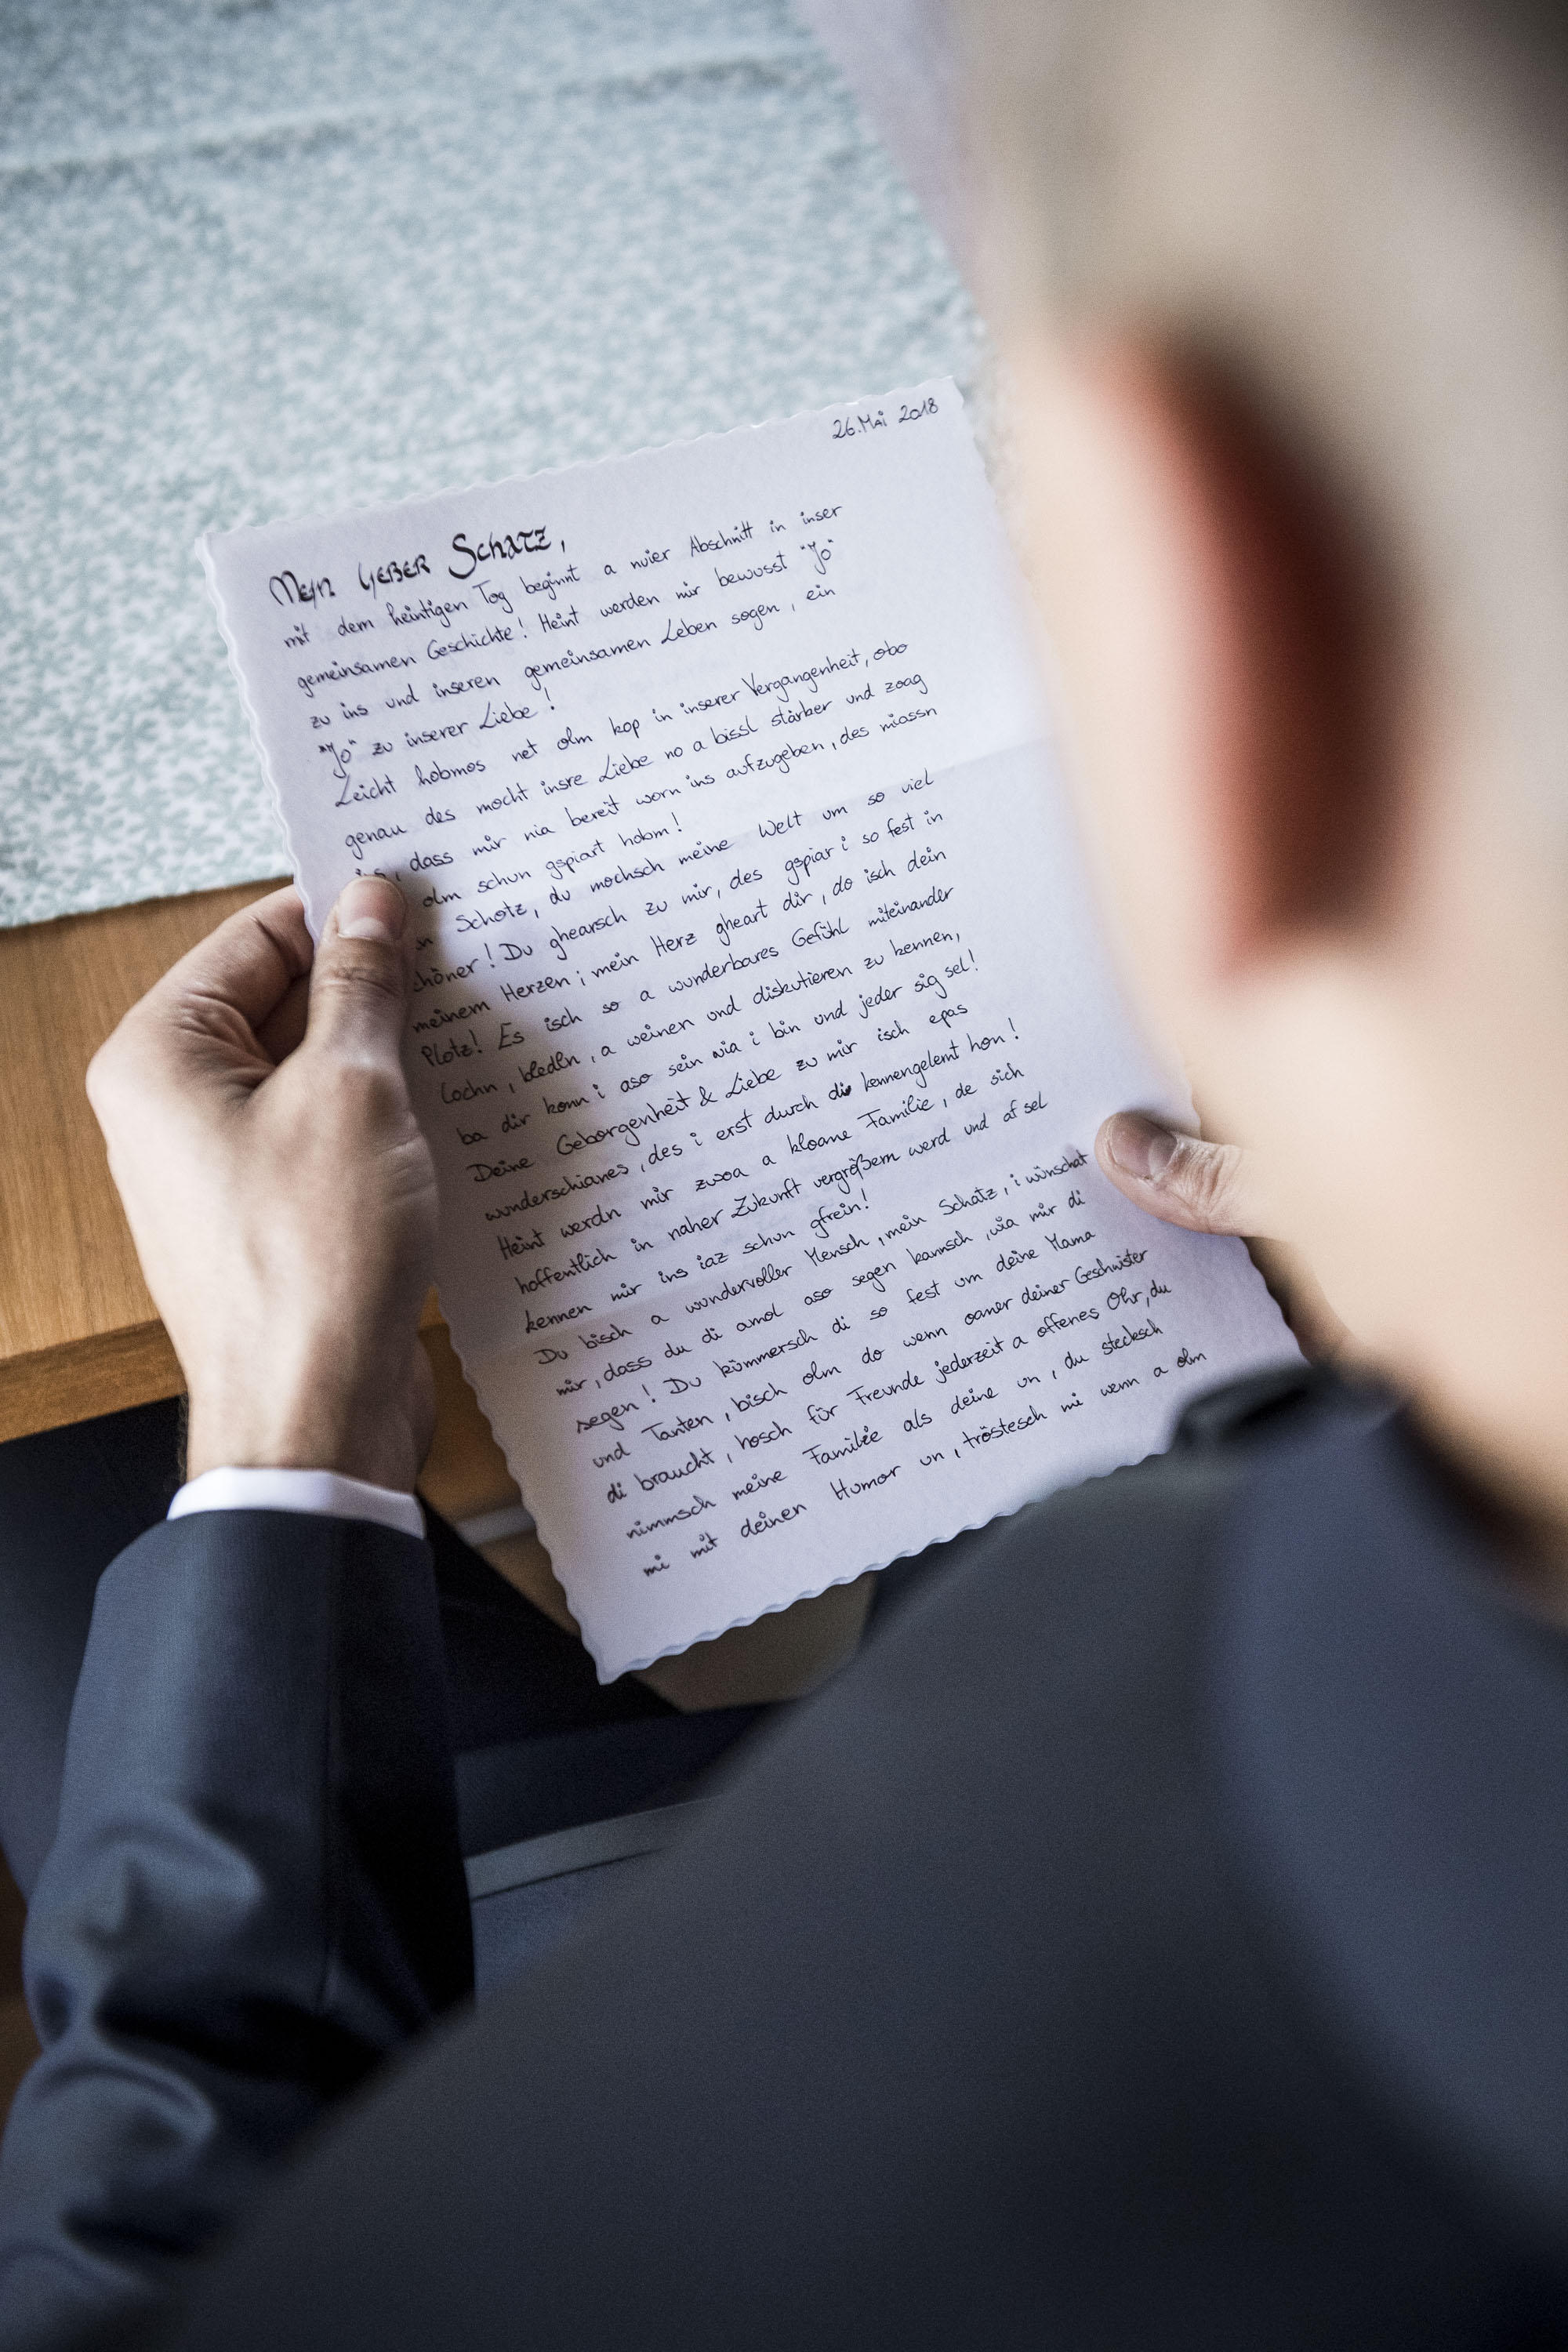 26. Mai 2018
Mein lieber Schatz,
mit dem heintigen Tog beginnt a nuier Abschnitt in inser
gemeinsamen Geschichte! Heint werden mir bewusst "Jo"
zu ins und inseren gemeinsamen Leben sogen, ein
"Jo" zu inserer Liebe!
Leicht hobmos net olm kop in inserer Vergangenheit, obo
genau des mocht insre Liebe no a bissl stärker und zoag
ins, dass mir nia bereit worn ins aufzugeben, des miassn
olm schun gspiart hobm!
Schotz, du mochsch meine Welt um so viel
schöner! Du ghearsch zu mir, des gspiar i so fest in
meinem Herzen; mein Herz gheart dir, do isch dein
Plotz! Es isch so a wunderbares Gefühl miteinander
lochn, bledln, a weinen und diskutieren zu kennen,
ba dir konn i aso sein wia i bin und jeder sig sel!
Deine Geborgenheit & Liebe zu mir isch epas
wunderschianes, des i erst durch di kennengelernt hon!
Heint werdn mir zwoa a kloane Familie, de sich
hoffentlich in naher Zukunft vergrößern werd und af sel
kennen mir ins iaz schun gfrein!
Du bisch a wundervoller Mensch, mein Schatz, i wünschat
mir, dass du di amol aso segen kannsch, wia mir di
segen! Du kümmersch di so fest um deine Mama
und Tanten, bisch olm do wenn oaner deiner Geschwister
di braucht, hosch für Freunde jederzeit a offenes Ohr, du
nimmsch meine Familie als deine un, du stecksch
mi mit deinen Humor un, tröstesch mi wenn a olm